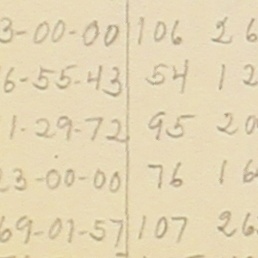 3-00-00 106 26
6-55-43 54 12
1-29-72 95 20
23-00-00 76 16
69-01-57 107 26